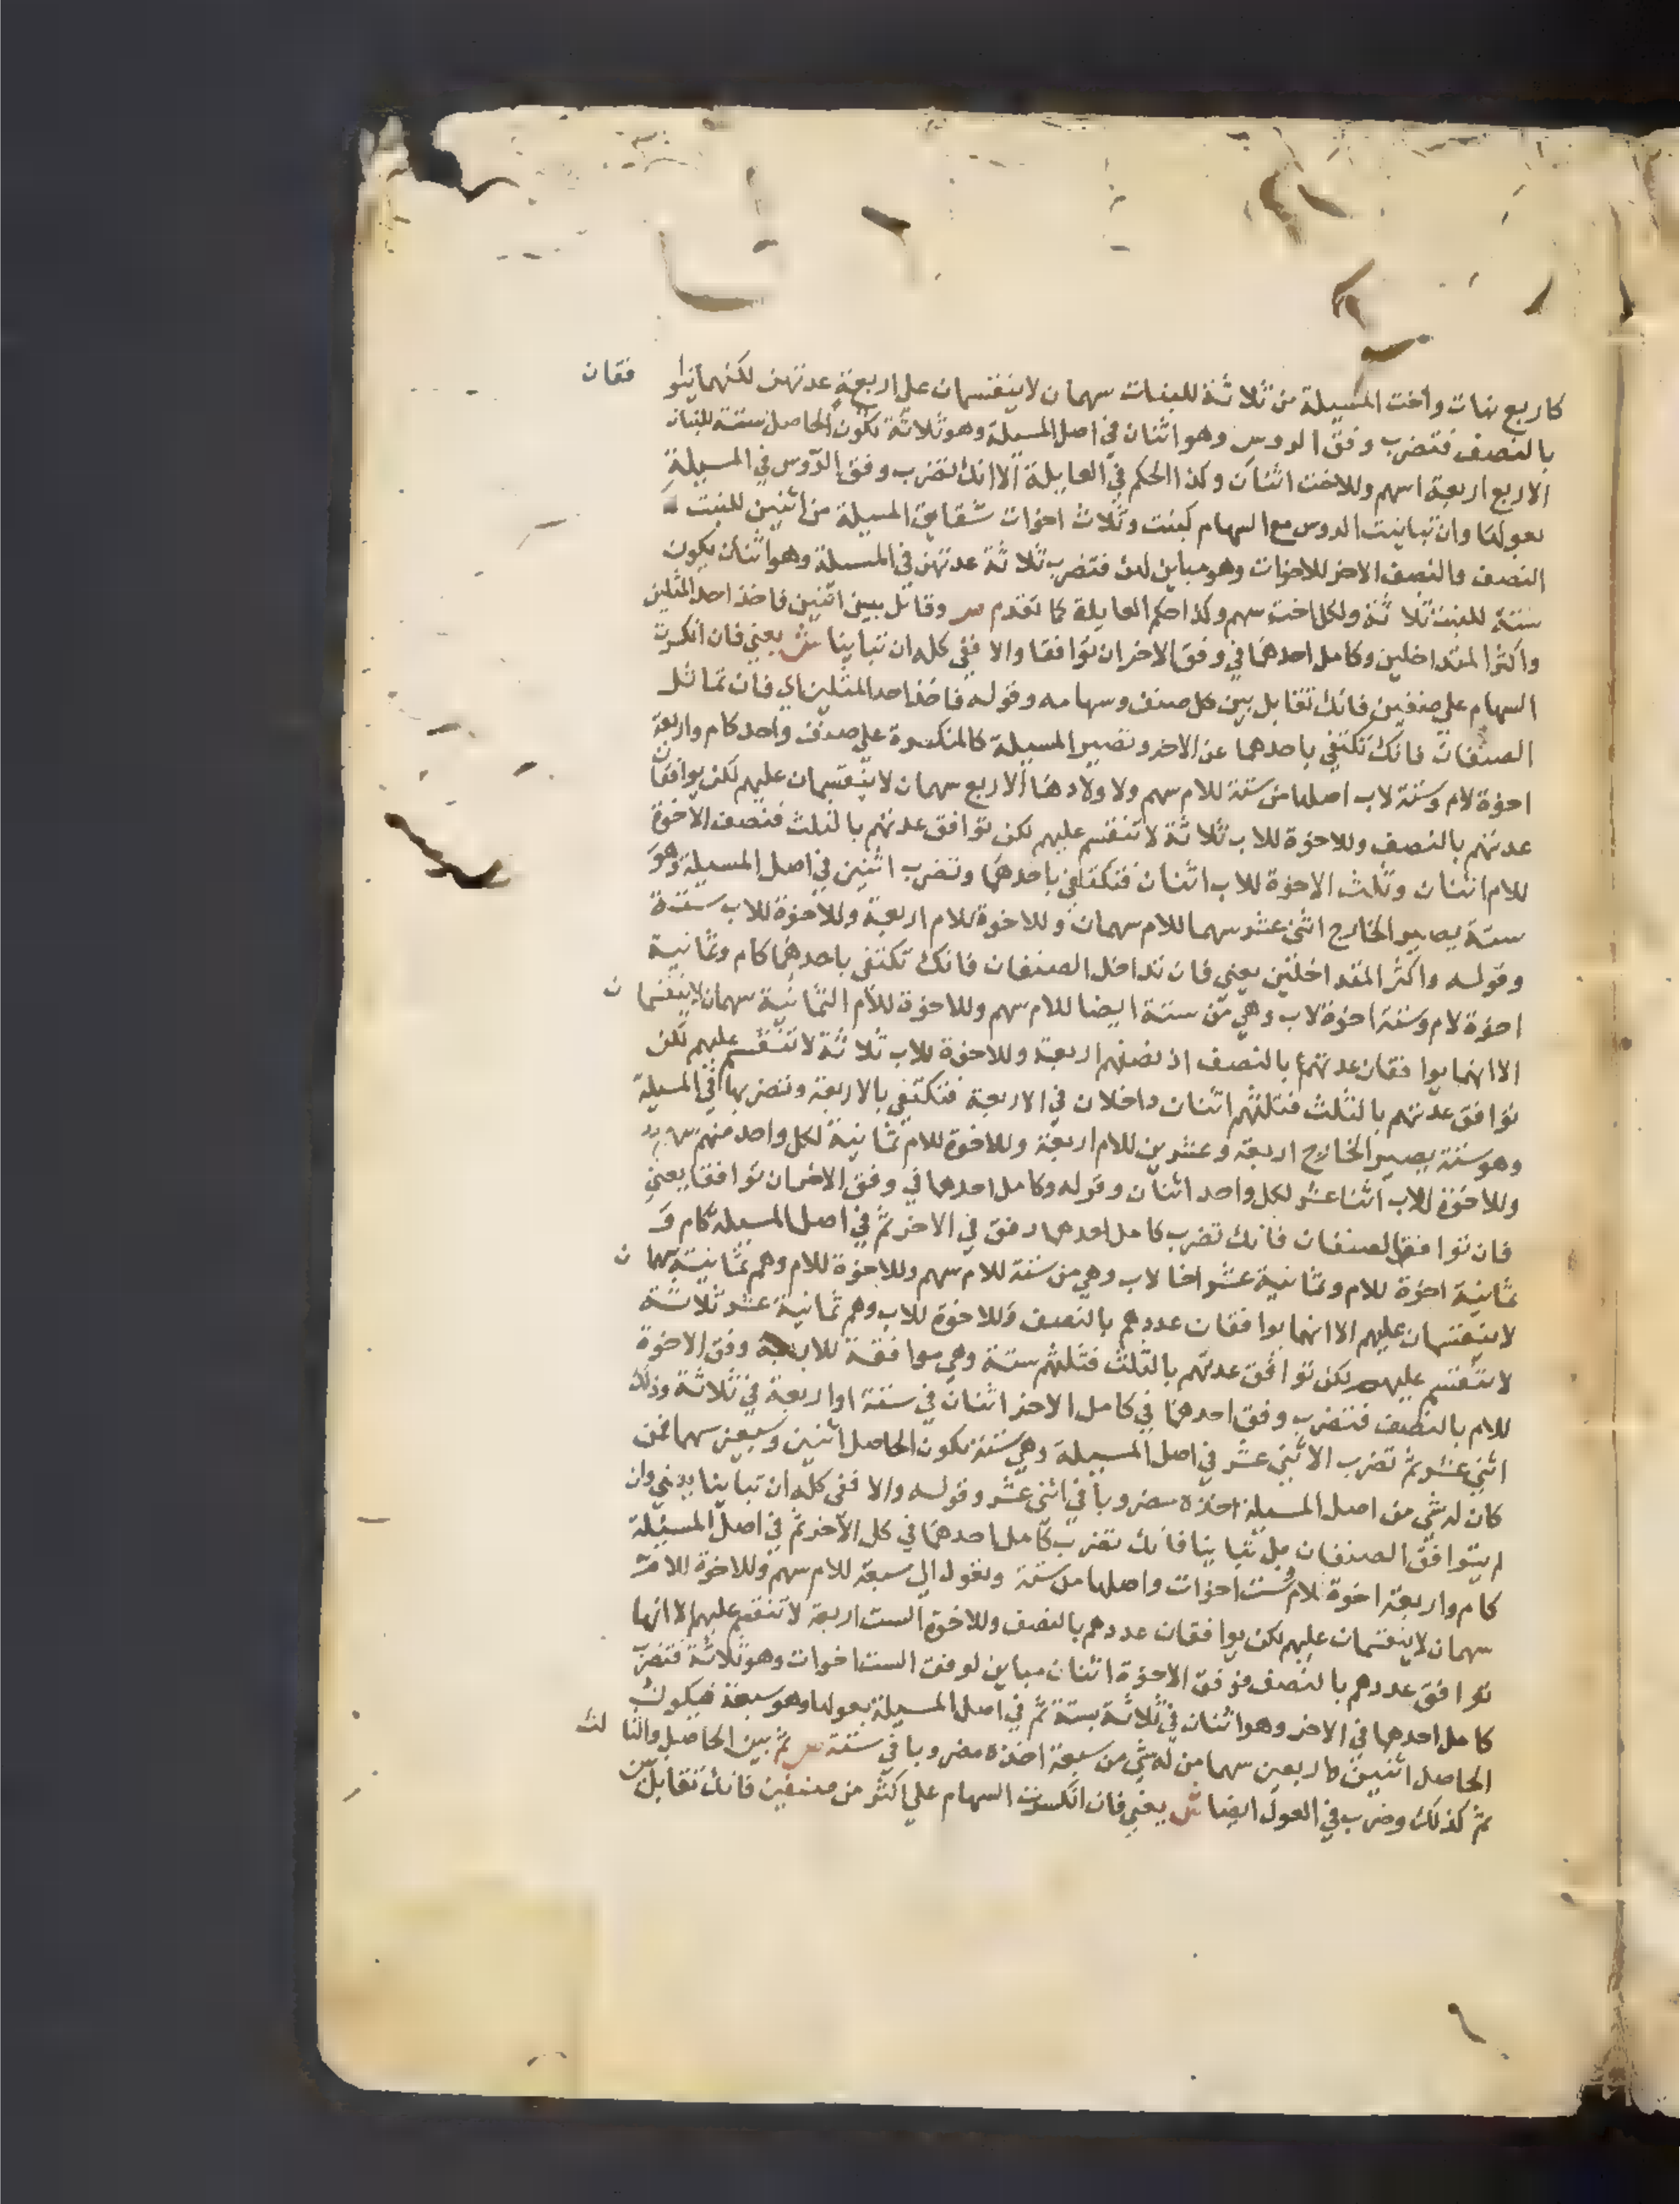 كاربع بنات واخت المسيلة من ثلاثة للبنات سهمان لا ينقسمان على اربعة عدتهن لكنهما يوا فقان
بالنصف فتضرب وفق الروس وهو اثنان في اصل المسيلة وهو ثلاثة تكون الحاصل ستة للبنات
الاربع اربعة اسهم وللاخت اثنان وكذا الحكم في العايلة الا انك تضرب وفق الروس في المسيلة
بعولها وان تباينت الروس مع السهام كبنت وثلاث اخوات شقايق المسيلة من اثنين للبنت
النصف والنصف الاخر للاخوات وهو مباين لهن فتضرب ثلاثة عدتهن في المسيلة وهو اثنان يكون
ستة للبنت ثلاثة ولكل اخت سهم وكذا حكم العايلة كما تقدم ص وقابل بين اثنين فاخذ احد المثلين
واكثر المتداخلين وكامل احدهما في وفق الاخر ان توافقا والا ففي كله ان تباينا ش يعني فان انكسرت
السهام علي صنفين فانك تقابل بين كل صنف وسهامه وقوله فاخذ احد المثلين اي فان تماثل
الصنفان فانك تكتفي باحدهما عن الاخر وتصير المسيلة كالمنكسرة علي صنف واحد كام واربعة
اخوة لام وستة لاب اصلها من ستة للام سهم ولاولادها الاربع سهمان لا ينقسمان عليهم لكن يوافقان
عدتهم بالنصف وللاخوة للاب ثلاثة لا تنقسم عليهم لكن توافق عدتهم بالثلث فنصف الاخوة
للام اثنان وثلث الاخوة للاب اثنان فتكتفي باحدهما وتضرب اثنين في اصل المسيلة وهو
ستة يصير الخارج اثني عشر سهما للام سهمان وللاخوة للام اربعة وللاخوة للاب ستة
وقوله واكثر المتداخلين يعني فان تداخل الصنفان فانك تكتفي باحدهما كام وثمانية
اخوة لام وستة اخوة لاب وهي من ستة ايضا للام سهم وللاخوة للام الثمانية سهمان لا ينقسمان
الا انهما يوافقان عدتهم بالنصف اذ نصفهم اربعة وللاخوة للاب ثلاثة لا تنقسم عليهم لكن
توافق عدتهم بالثلث فثلثهم اثنان داخلان في الاربعة فتكتفي بالاربعة وتضربها في المسيلة
وهو ستة يصير الخارج اربعة وعشرين للام اربعة وللاخوة للام ثمانية لكل واحد منهم سهم
وللاخوة للاب اثنا عشر لكل واحد اثنان وقوله وكامل احدهما في وفق الاخر ان توافقا يعني
فان توافق الصنفان فانك تضرب كامل احدهما وفق في الاخر ثم في اصل المسيلة كام و
ثمانية اخوة للام وثمانية عشر اخا لاب وهي من ستة للام سهم وللاخوة للام وهم ثمانية سهمان
لا ينقسمان عليهم الا انهما يوافقان عددهم بالنصف وللاخوة للاب وهم ثمانية عشر ثلاثة
لا تنقسم عليهم لكن توافق عدتهم بالثلث فثلثهم ستة وهي موافقة للاربعة وفق الاخوة
للام بالنصف فتضرب وفق احدهما في كامل الاخر اثنان في ستة او اربعة في ثلاثة وذلك
اثني عشر ثم تضرب الاثني عشر في اصل المسيلة وهي ستة يكون الحاصل اثنين وسبعين سهما فمن
كان له شي من اصل المسيلة اخذه مضروبا في اثني عشر وقوله والا ففي كله ان تباينا يعني وان
لم يتوافق الصنفان بل تباينا فانك تضرب كامل احدهما في كل الاخر ثم في اصل المسيلة
كام واربعة اخوة لام وست اخوات واصلها من ستة وتعول الي سبعة للام سهم وللاخوة للام
سهمان لا ينقسمان عليهم لكن يوافقان عددهم بالنصف وللاخوة الست اربعة لا تنقسم عليهم الا انها
توافق عددهم بالنصف فوفق الاخوة اثنان مباين لوفق الست اخوات وهو ثلاثة فتضرب
كامل احدهما في الاخر وهو اثنان في ثلاثة بستة ثم في اصل المسيلة بعولها وهو سبعة فيكون
الحاصل اثنين واربعين سهما من له شي من سبعة اخذه مضروبا في ستة ص ثم بين الحاصل والثالث
ثم كذلك وضرب في العول ايضا ش يعني فان انكسرت السهام علي اكثر من صنفين فانك تقابل بين